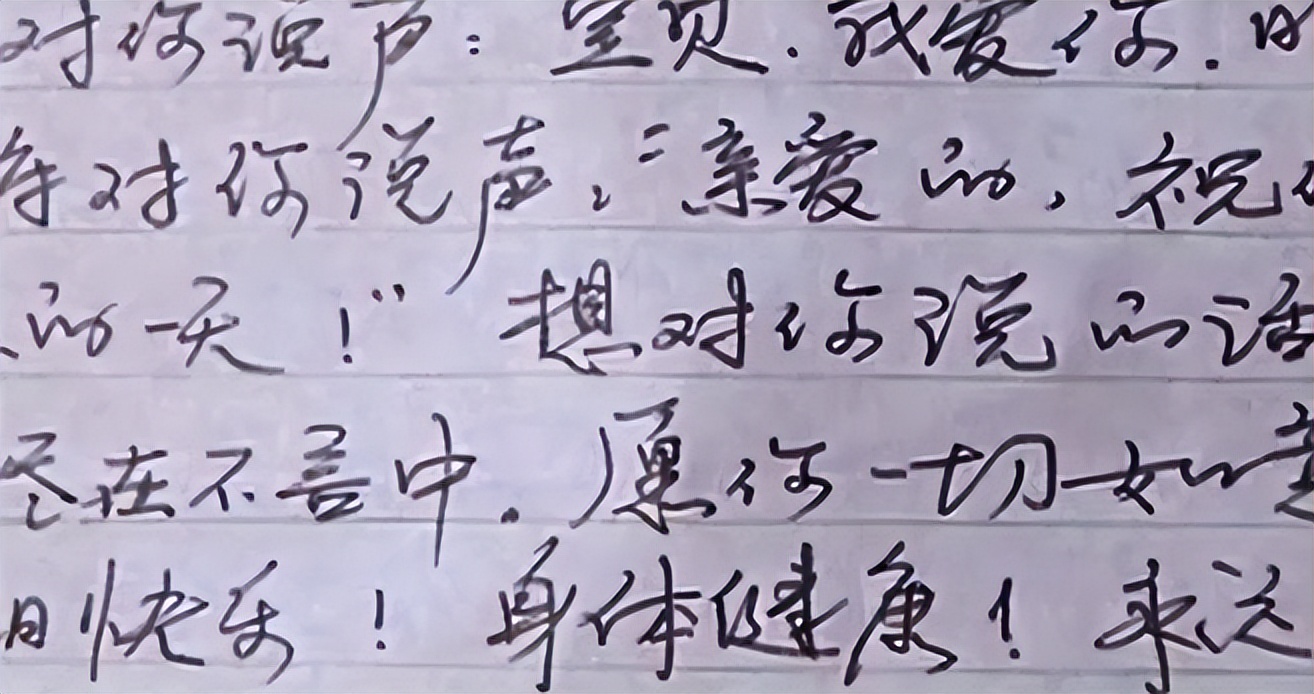 对你说声：宝贝.我爱你.
年对你说声，“亲爱的，祝
的一天！” 想对你说的话
尽在不言中。愿你一切如意
日快乐！ 身体健康！ 永远